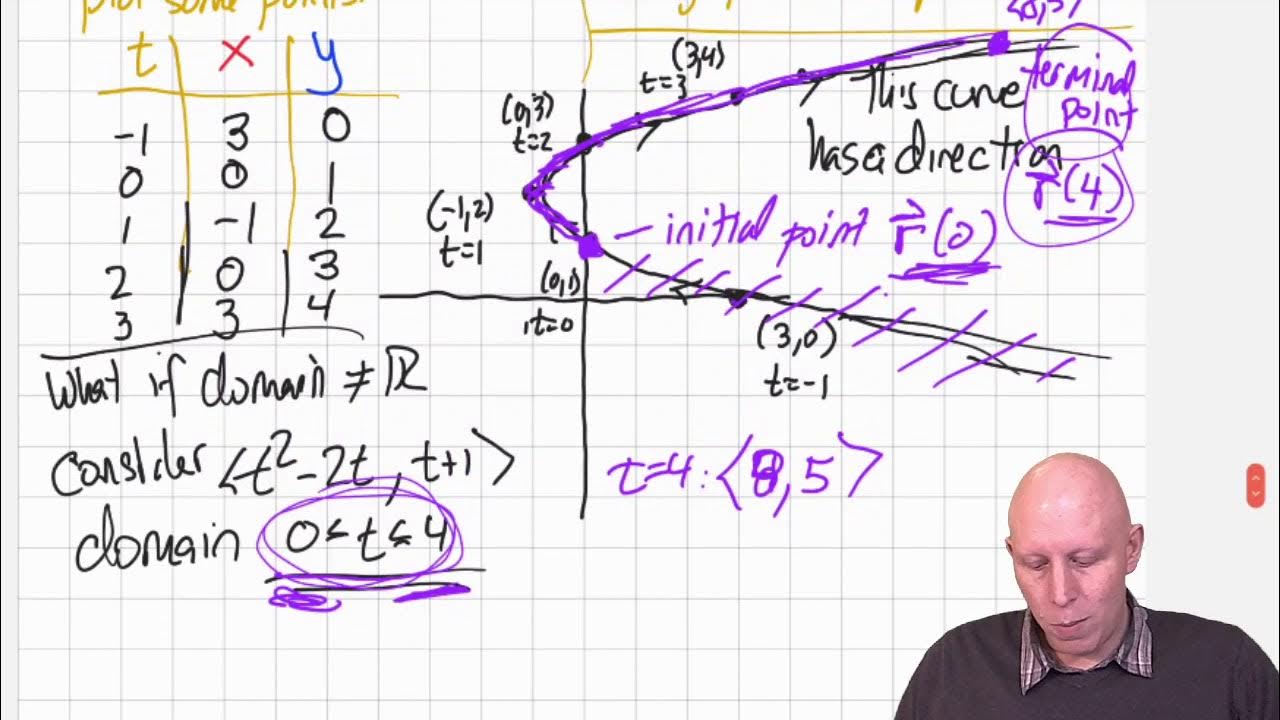 plot some points.
t x y
-1 3 0
0 0 1
1 -1 2
2 0 3
3 3 4
What if domain ≠ ℝ
Consider <t²-2t, t+1>
domain 0≤t≤4
(3,4)
t=3
(0,3)
t=2
(-1,2)
t=1
(0,1)
t=0
(3,0)
t=-1
This curve
has a direction
terminal
point
r⃗(4)
initial point r⃗(0)
t=4: <8,5>